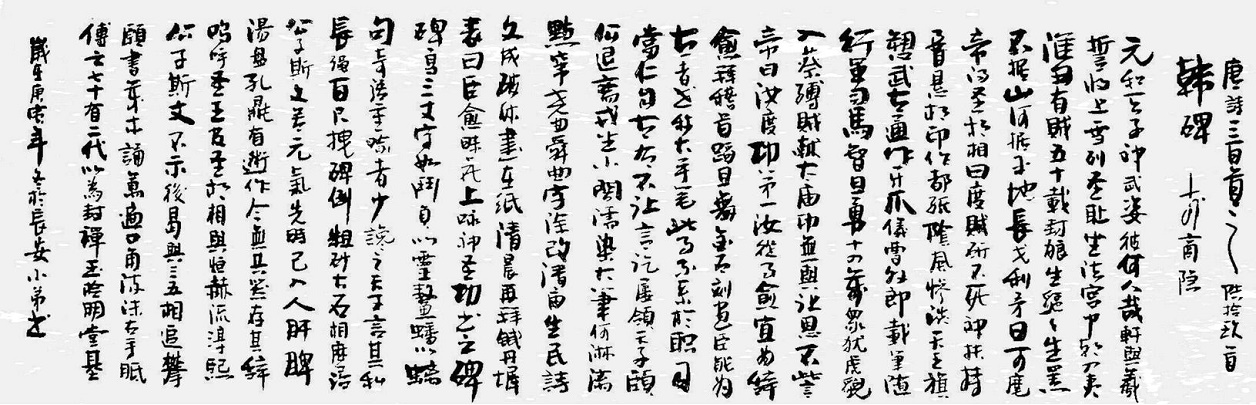 唐詩三百首之 陸拾玖首
韓碑 李商隱
元和天子神武姿彼何人哉軒與羲
誓將上雪列聖恥坐法宮中朝四夷
淮西有賊五十載封狼生貙貙生羆
不據山河據平地長戈利矛日可麾
帝得聖相相曰度賊斫不死神扶持
腰懸相印作都統陰風慘淡天王旗
愬武古通作牙爪儀曹外郎載筆隨
行軍司馬智且勇十四萬眾猶虎貔
入蔡縛賊獻太廟功無與讓恩不訾
帝曰汝度功第一汝從事愈宜為辭
愈拜稽首蹈且舞金石刻畫臣能為
古者世稱大手筆此事不系於職司
當仁自古有不讓言訖屢頷天子頤
公退齋戒坐小閣濡染大筆何淋漓
點竄堯典舜典字塗改清廟生民詩
文成破體書在紙清晨再拜鋪丹墀
表曰臣愈昧死上詠神聖功書之碑
碑高三丈字如鬥負以靈鰲蟠以螭
句奇語重喻者少讒之天子言其私
長繩百尺拽碑倒粗砂大石相磨治
公之斯文若元氣先時已入人肝脾
湯盤孔鼎有述作今無其器存其辭
嗚呼聖王及聖相相與烜赫流淳熙
公之斯文不示後曷與三五相追攀
願書萬本誦萬過口角流沫右手胝
傳之七十有二代以為封禪玉檢明堂基
歲在庚寅年 於長安小弟書